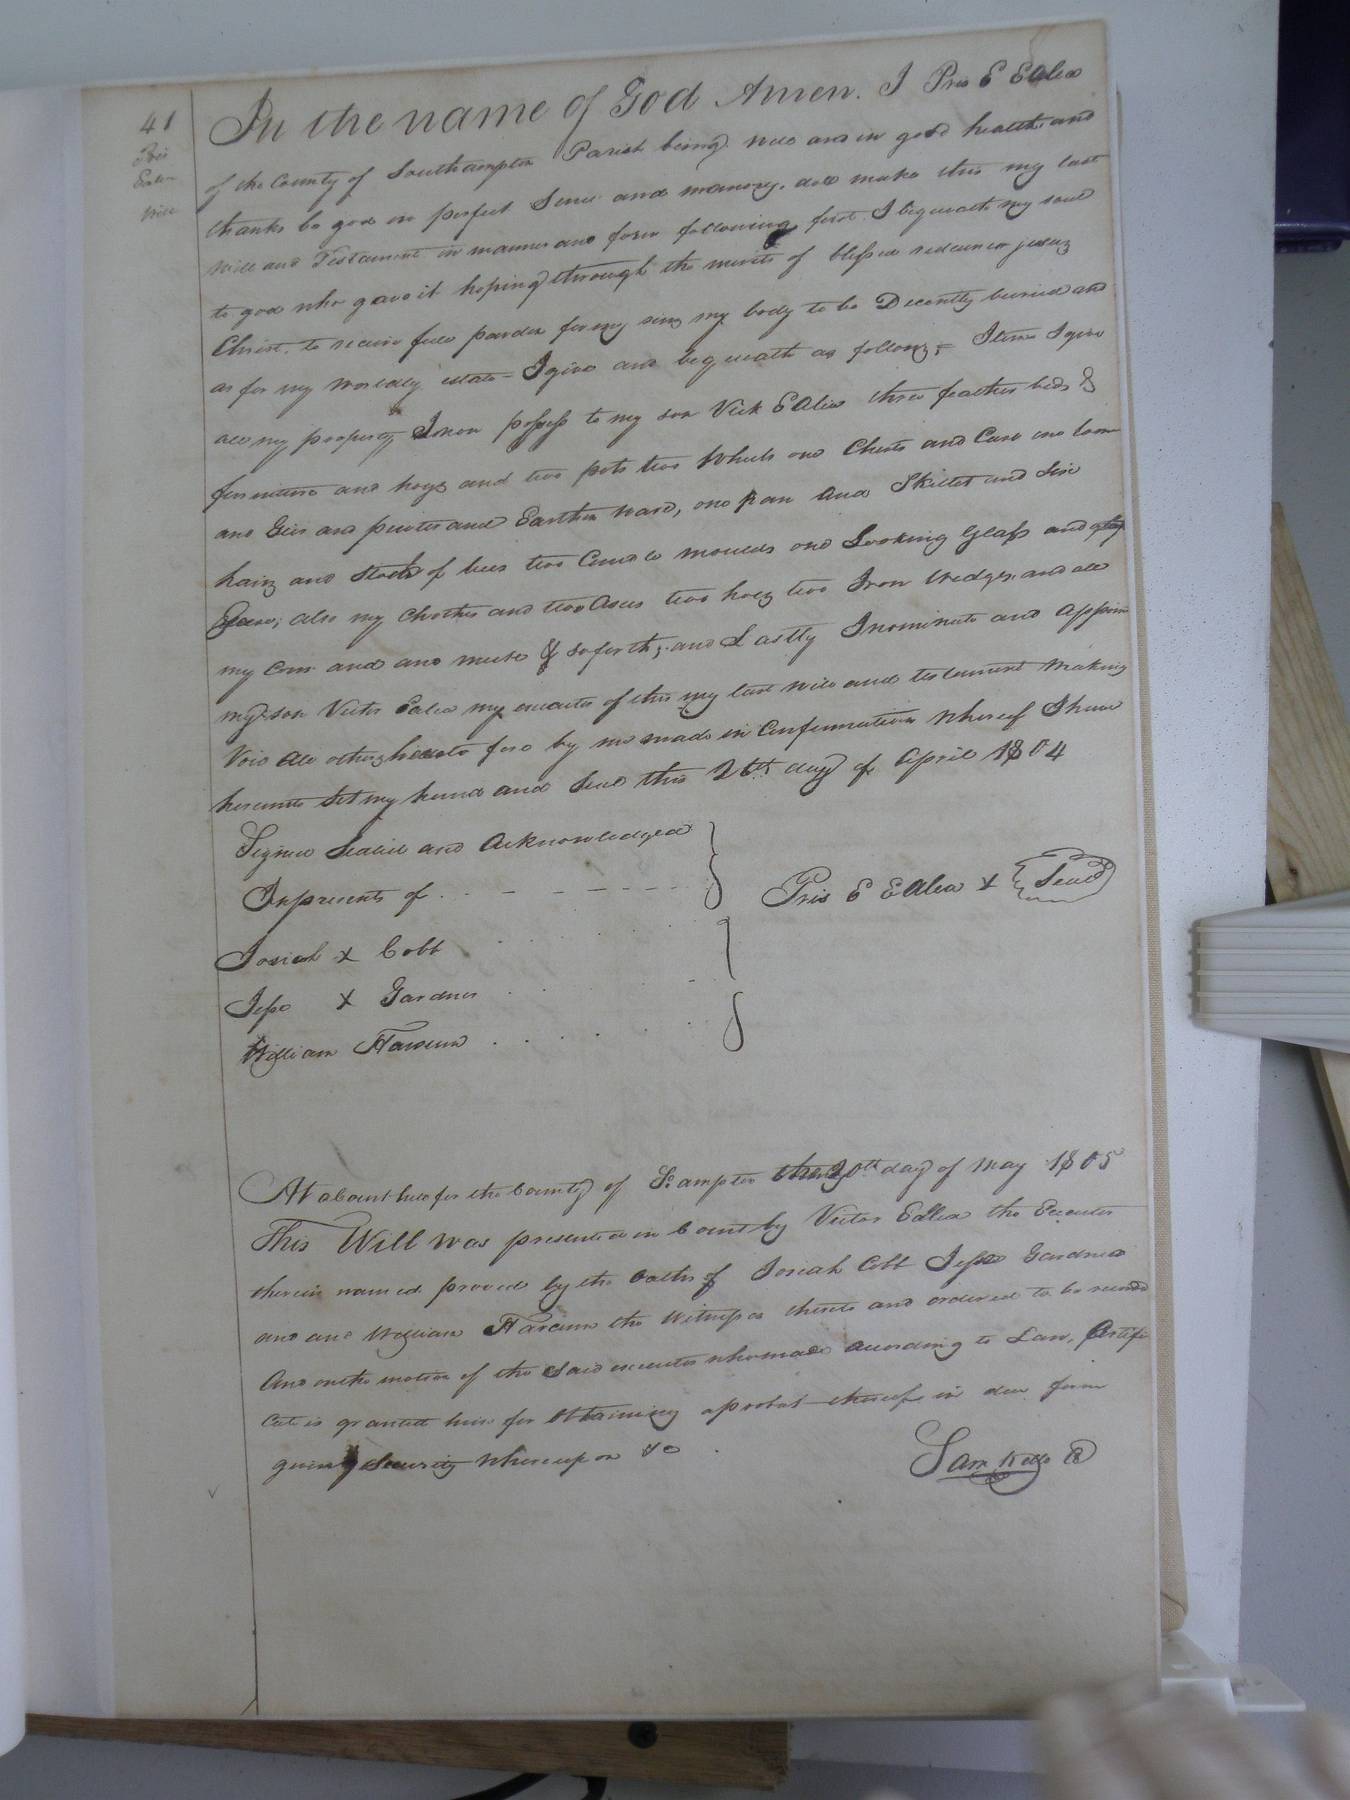 41
Pris
Edlea
Will
In the name of God Amen. I Pris E Edlea
of the County of Southampton Parish being well and in good health and
thanks be god in perfect Sence and memory. doe make this my last
will and Testament in manner and form following, first I bequeath my soul
to god who gave it hoping through the merits of blessed redeemer jesus
Christ. to receive full pardon for my sins my body to be Decently buried and
as for my worldly estate - I give and bequeath as follows; - Item I give
all my property I now possess to my son Vick Edlea three feather beds &
furniture and hogs and two pots two Wheels one Chests and Case one loom
and Geir and peuter and Earthen ward, one pan and Skillet and Six
hairs and Stock of bees two Candle moulds one Looking Glass and
also my Clothes and two Axes two hoes two Iron Wedges, and all
my Corn and and meete & so forth; and Lastly I nominate and appoin
my son Victor Edlea my executor of this my last will and testament Making
Void all others heareto fore by me made in Confermation whereof I have
hereunto Set my hand and Seal this 26th day of April 1804
Signed Sealed and Acknowledged
In presents of
Pris E Edlea X Seal
Josiah X Cobb
Jesse X Gardner
William Harcum
At a Court held for the County of S:ampton the 20th day of May 1805
This Will was presented in Court by Victor Edlea the Executor
therein named proved by the oaths of Josiah Cobb Jesse Gardner
and and William Harcum the Witnesses thereto and ordered to be
And on the motion of the Said executor who made according to Law, Certifi
cate is granted him for Obtaining a probat thereof in due form
giveing Security whereupon &c
Sam Kello C